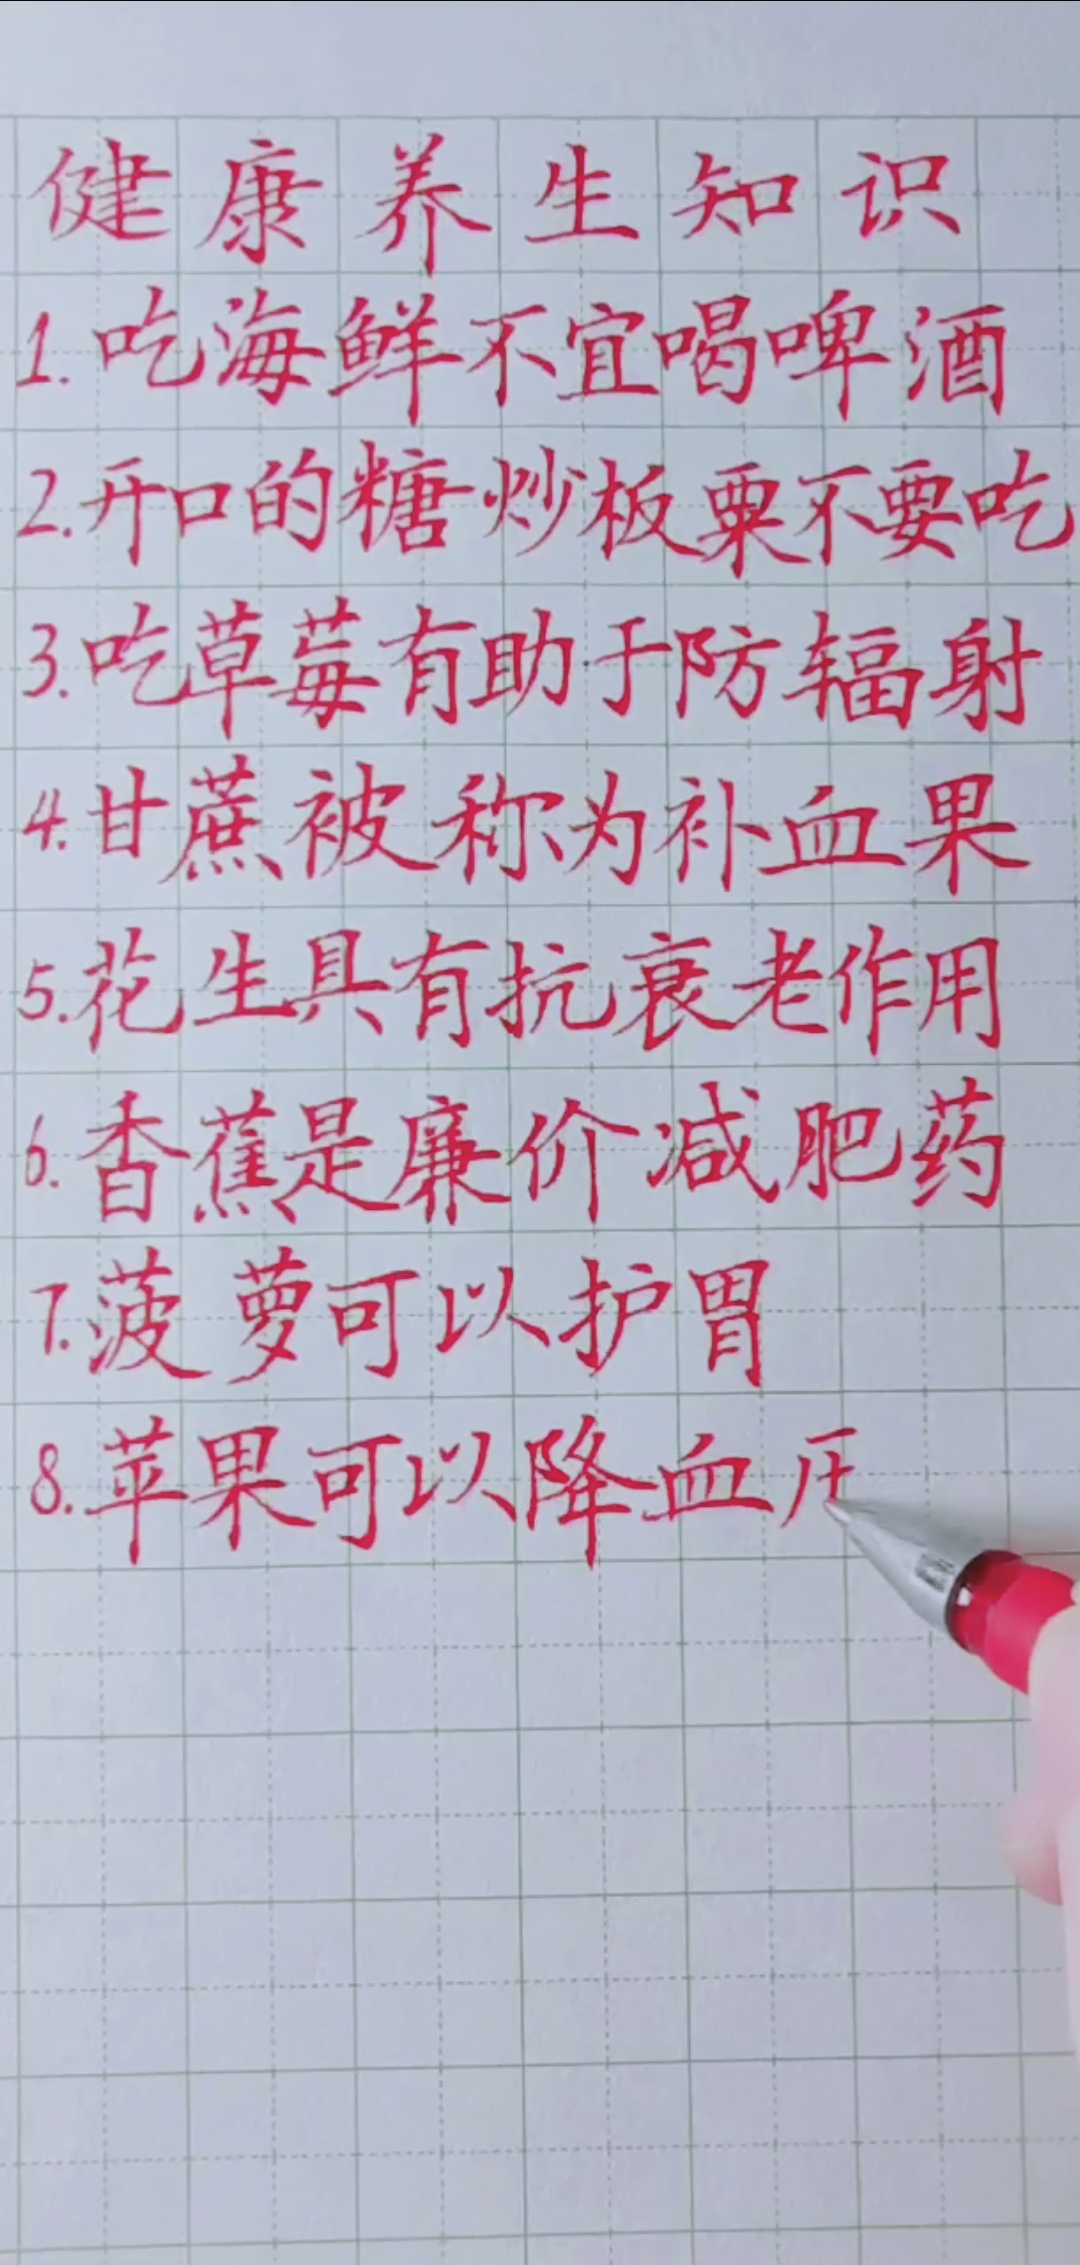 健康养生知识
1.吃海鲜不宜喝啤酒
2.开口的糖炒板粟不要吃
3.吃草莓有助于防辐射
4.甘蔗被称为补血果
5.花生具有抗衰老作用
6.香蕉是廉价减肥药
7.菠萝可以护胃
8.苹果可以降血